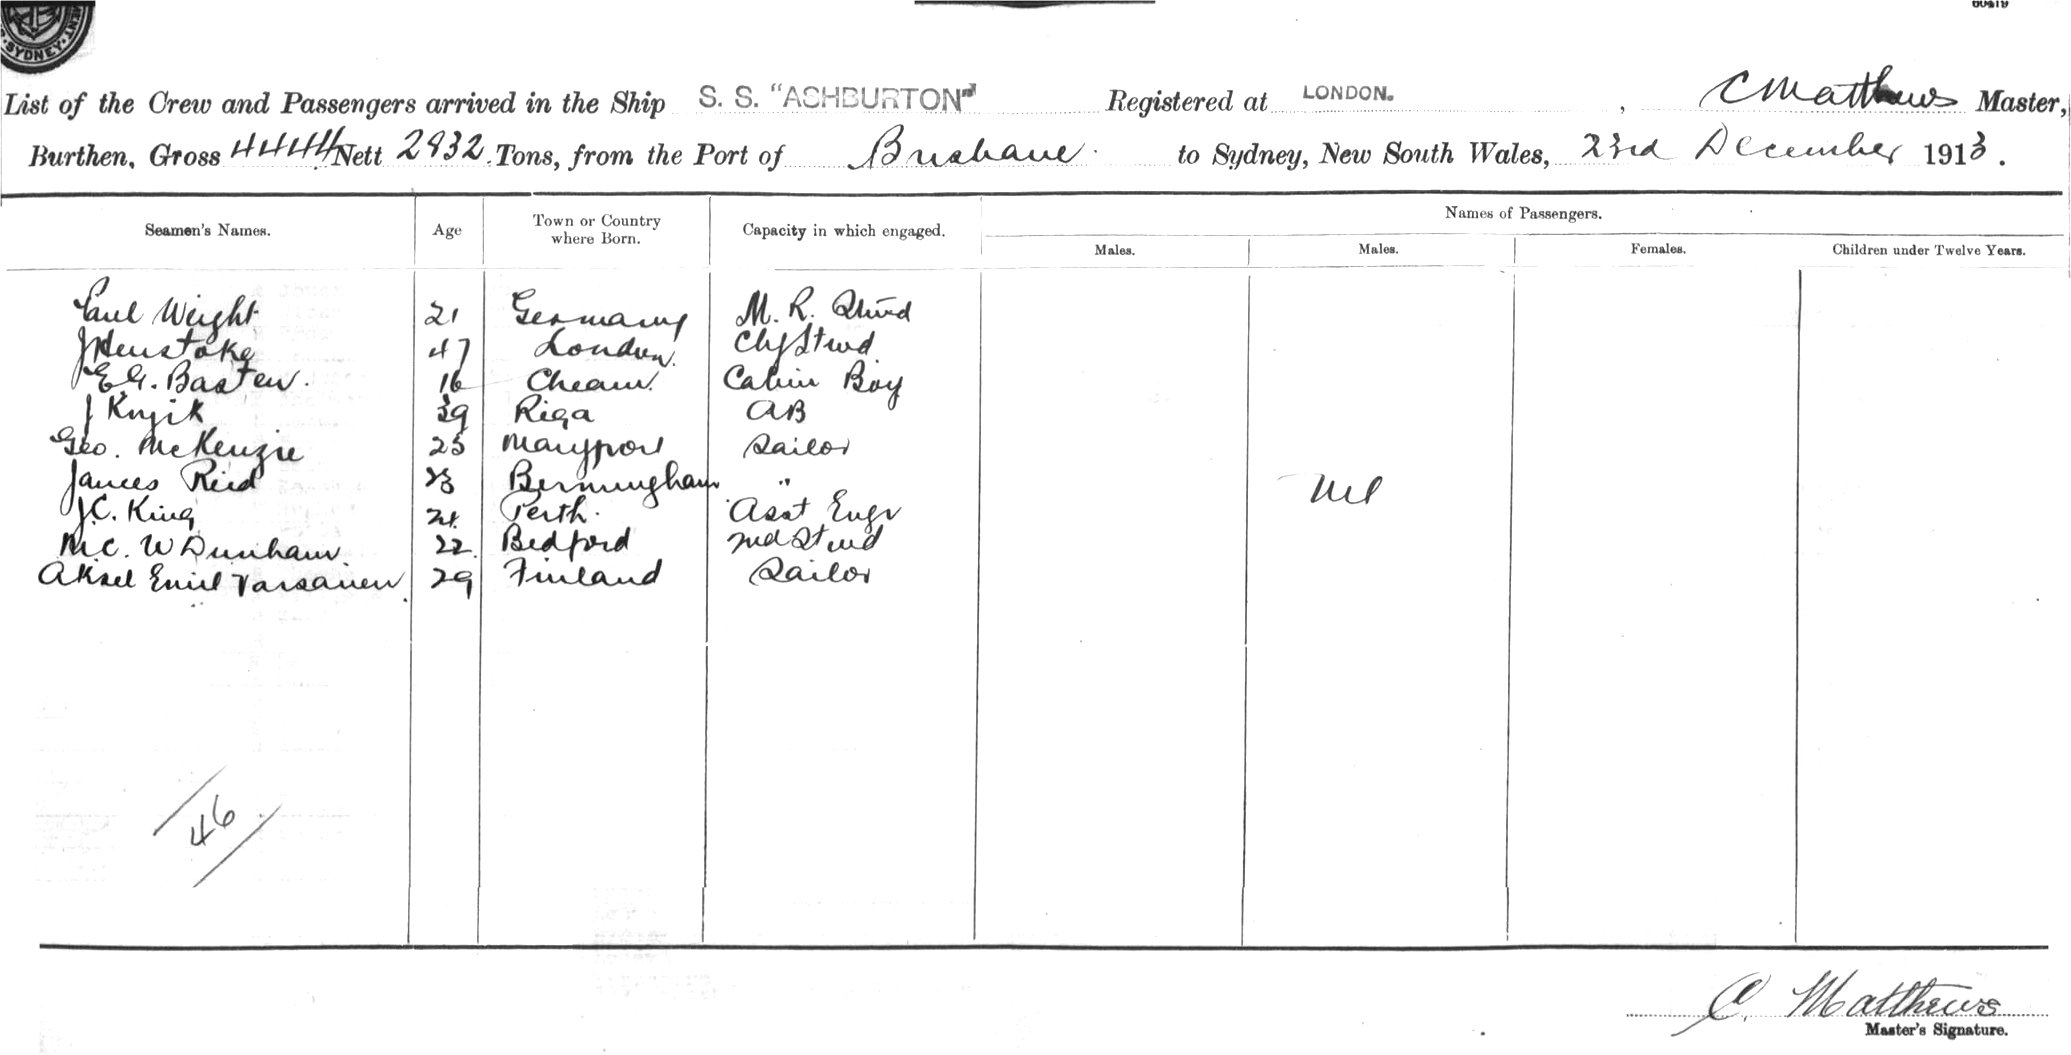 SYDNEY
List of the Crew and Passengers arrived in the Ship S. S. "ASHBURTON" Registered at LONDON. , C Matthews Master,
Burthen, Gross 4444 Nett 2932 Tons, from the Port of Brisbane to Sydney, New South Wales, 23rd December 1913.
Names of Passengers.
Seamen's Names. Age Town or Country where Born. Capacity in which engaged. Males. Males. Females. Children under Twelve Years.
Paul Weight 21 Germany M. R. Stwd
J Henstoke 47 London. Chf Stwd
E.G. Basten. 16 Cheam. Cabin Boy
J 39 Riga AB
Geo. McKenzie 25 Maryport Sailor
James Reid 23 Birmingham "
Nil
J.C. King 24 Perth. Asst Engr
W Dunham 22 Bedford 2nd Stwd
Aksel Emil 29 Finland Sailor
46
C. Matthews
Master's Signature.